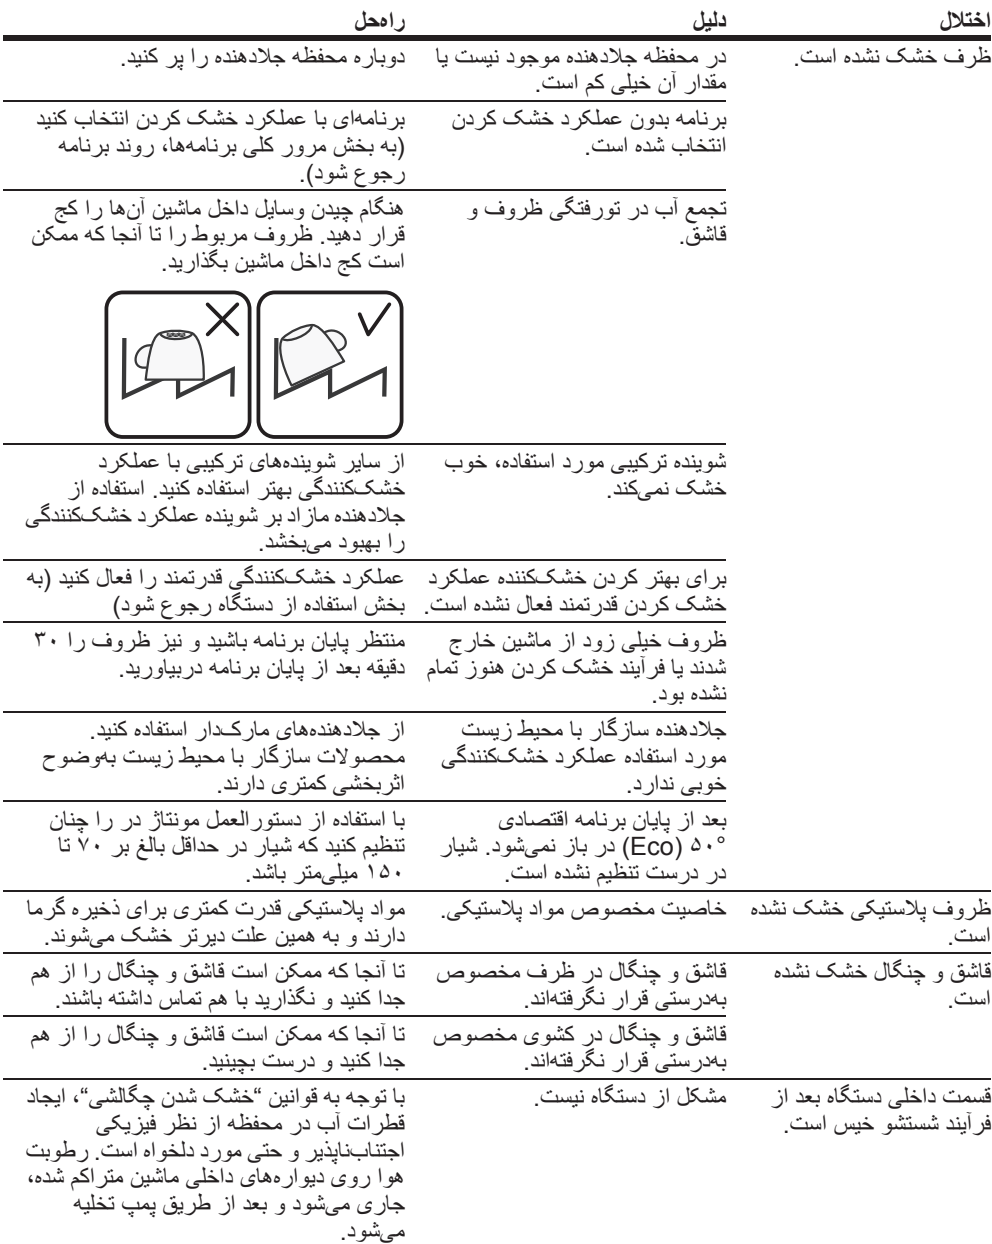 اختلال
دلیل
راه‌حل
ظرف خشک نشده است.
در محفظه جلادهنده موجود نیست یا
مقدار آن خیلی کم است.
دوباره محفظه جلادهنده را پر کنید.
برنامه بدون عملکرد خشک کردن
انتخاب شده است.
برنامه‌ای با عملکرد خشک کردن انتخاب کنید
(به بخش مرور کلی برنامه‌ها، روند برنامه
رجوع شود).
تجمع آب در تورفتگی ظروف و
قاشق.
هنگام چیدن وسایل داخل ماشین آن‌ها را کج
قرار دهید. ظروف مربوط را تا آنجا که ممکن
است کج داخل ماشین بگذارید.
شوینده ترکیبی مورد استفاده، خوب
خشک نمی‌کند.
از سایر شوینده‌های ترکیبی با عملکرد
خشک‌کنندگی بهتر استفاده کنید. استفاده از
جلادهنده مازاد بر شوینده عملکرد خشک‌کنندگی
را بهبود می‌بخشد.
برای بهتر کردن خشک‌کننده عملکرد
خشک کردن قدرتمند فعال نشده است.
عملکرد خشک‌کنندگی قدرتمند را فعال کنید (به
بخش استفاده از دستگاه رجوع شود)
ظروف خیلی زود از ماشین خارج
شدند یا فرآیند خشک کردن هنوز تمام
نشده بود.
منتظر پایان برنامه باشید و نیز ظروف را ۳۰
دقیقه بعد از پایان برنامه دربیاورید.
جلادهنده سازگار با محیط زیست
مورد استفاده عملکرد خشک‌کنندگی
خوبی ندارد.
از جلادهنده‌های مارک‌دار استفاده کنید.
محصولات سازگار با محیط زیست به‌وضوح
اثربخشی کمتری دارند.
بعد از پایان برنامه اقتصادی
۵۰° (Eco) در باز نمی‌شود. شیار
در درست تنظیم نشده است.
با استفاده از دستورالعمل مونتاژ در را چنان
تنظیم کنید که شیار در حداقل بالغ بر ۷۰ تا
۱۵۰ میلی‌متر باشد.
ظروف پلاستیکی خشک نشده
است.
خاصیت مخصوص مواد پلاستیکی.
مواد پلاستیکی قدرت کمتری برای ذخیره گرما
دارند و به همین علت دیرتر خشک می‌شوند.
قاشق و چنگال خشک نشده
است.
قاشق و چنگال در ظرف مخصوص
به‌درستی قرار نگرفته‌اند.
تا آنجا که ممکن است قاشق و چنگال را از هم
جدا کنید و نگذارید با هم تماس داشته باشند.
قاشق و چنگال در کشوی مخصوص
به‌درستی قرار نگرفته‌اند.
تا آنجا که ممکن است قاشق و چنگال را از هم
جدا کنید و درست بچینید.
قسمت داخلی دستگاه بعد از
فرآیند شستشو خیس است.
مشکل از دستگاه نیست.
با توجه به قوانین “خشک شدن چگالشی“، ایجاد
قطرات آب در محفظه از نظر فیزیکی
اجتناب‌ناپذیر و حتی مورد دلخواه است. رطوبت
هوا روی دیواره‌های داخلی ماشین متراکم شده،
جاری می‌شود و بعد از طریق پمپ تخلیه
می‌شود.